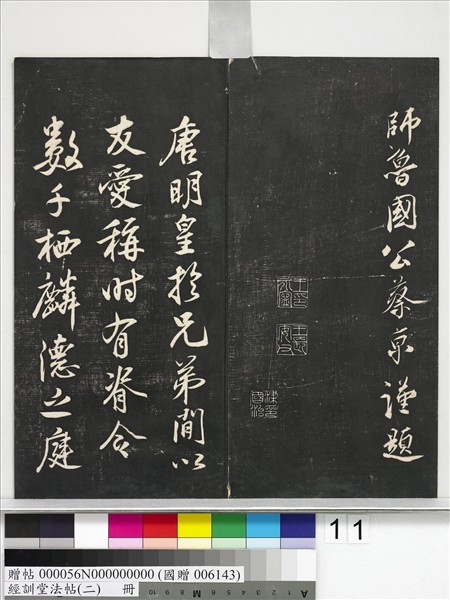 師魯國公蔡京謹題
王印永寧
王長安父
梁印國治
唐明皇於兄弟間以
友愛稱時有脊令
數千栖麟德之庭
11
贈帖 000056N000000000 (國贈 006143)
經訓堂法帖(二) 冊